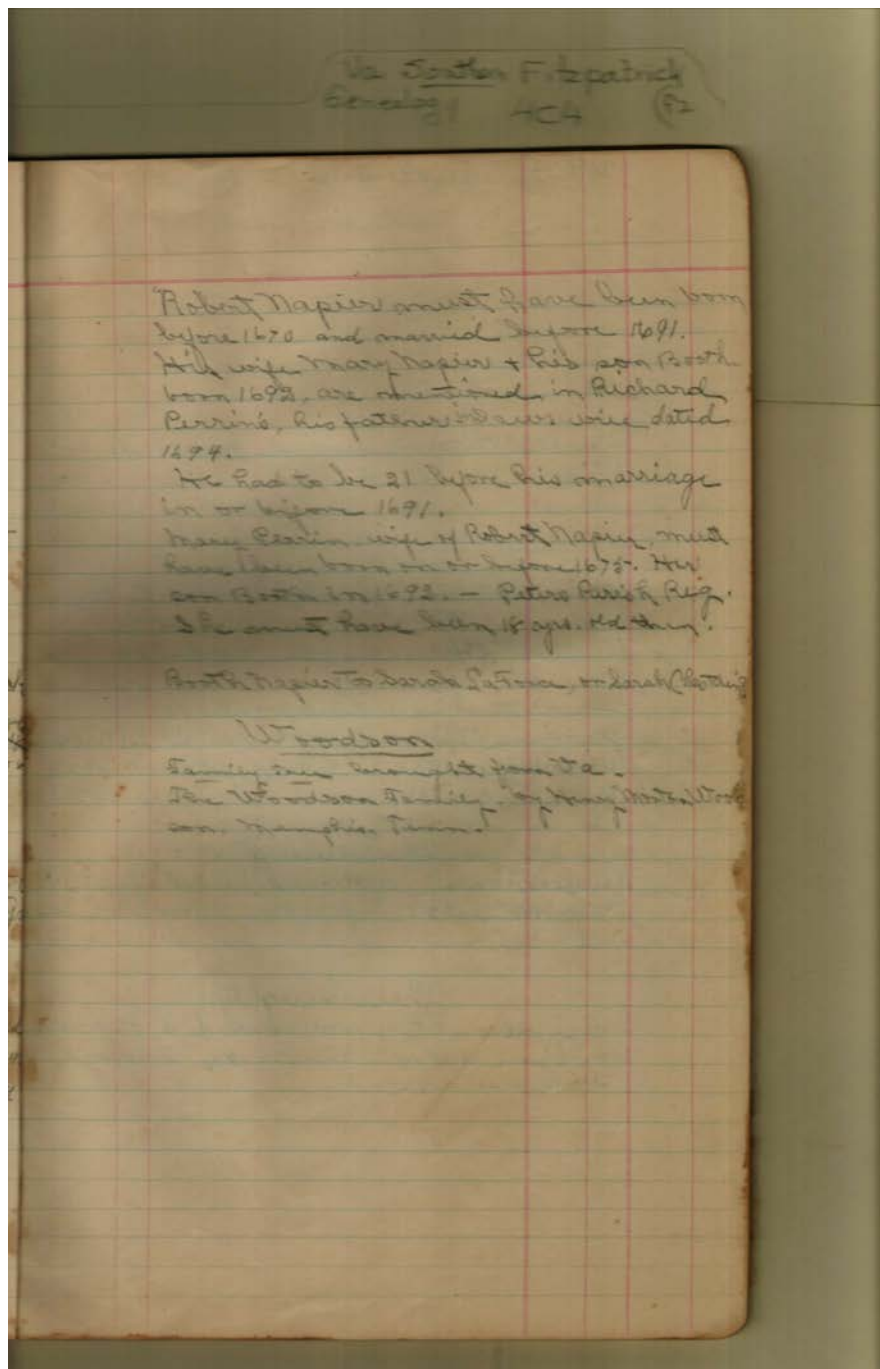 Va Southern Fitzpatrick
Genealogy 4C4 F2
"Robert Napier must have been born
before 1670 and married before 1691.
His wife Mary Napier + his son Booth
born 1692, are mentioned in Richard
Perrin's, his father in laws will dated
1694.
He had to be 21 before his marriage
in or before 1691.
Mary Perrin wife of Robert Napier, must
have been born on or before 1675. Her
son Booth in 1692. — Peters Parish Reg.
She must have been 18 yrs. old then".
Booth Napier to Sarah or Sarah
Woodson
Family Tree brought from Va.
The Woodson Family. by Henry Morton Wood
son. Memphis. Tenn.